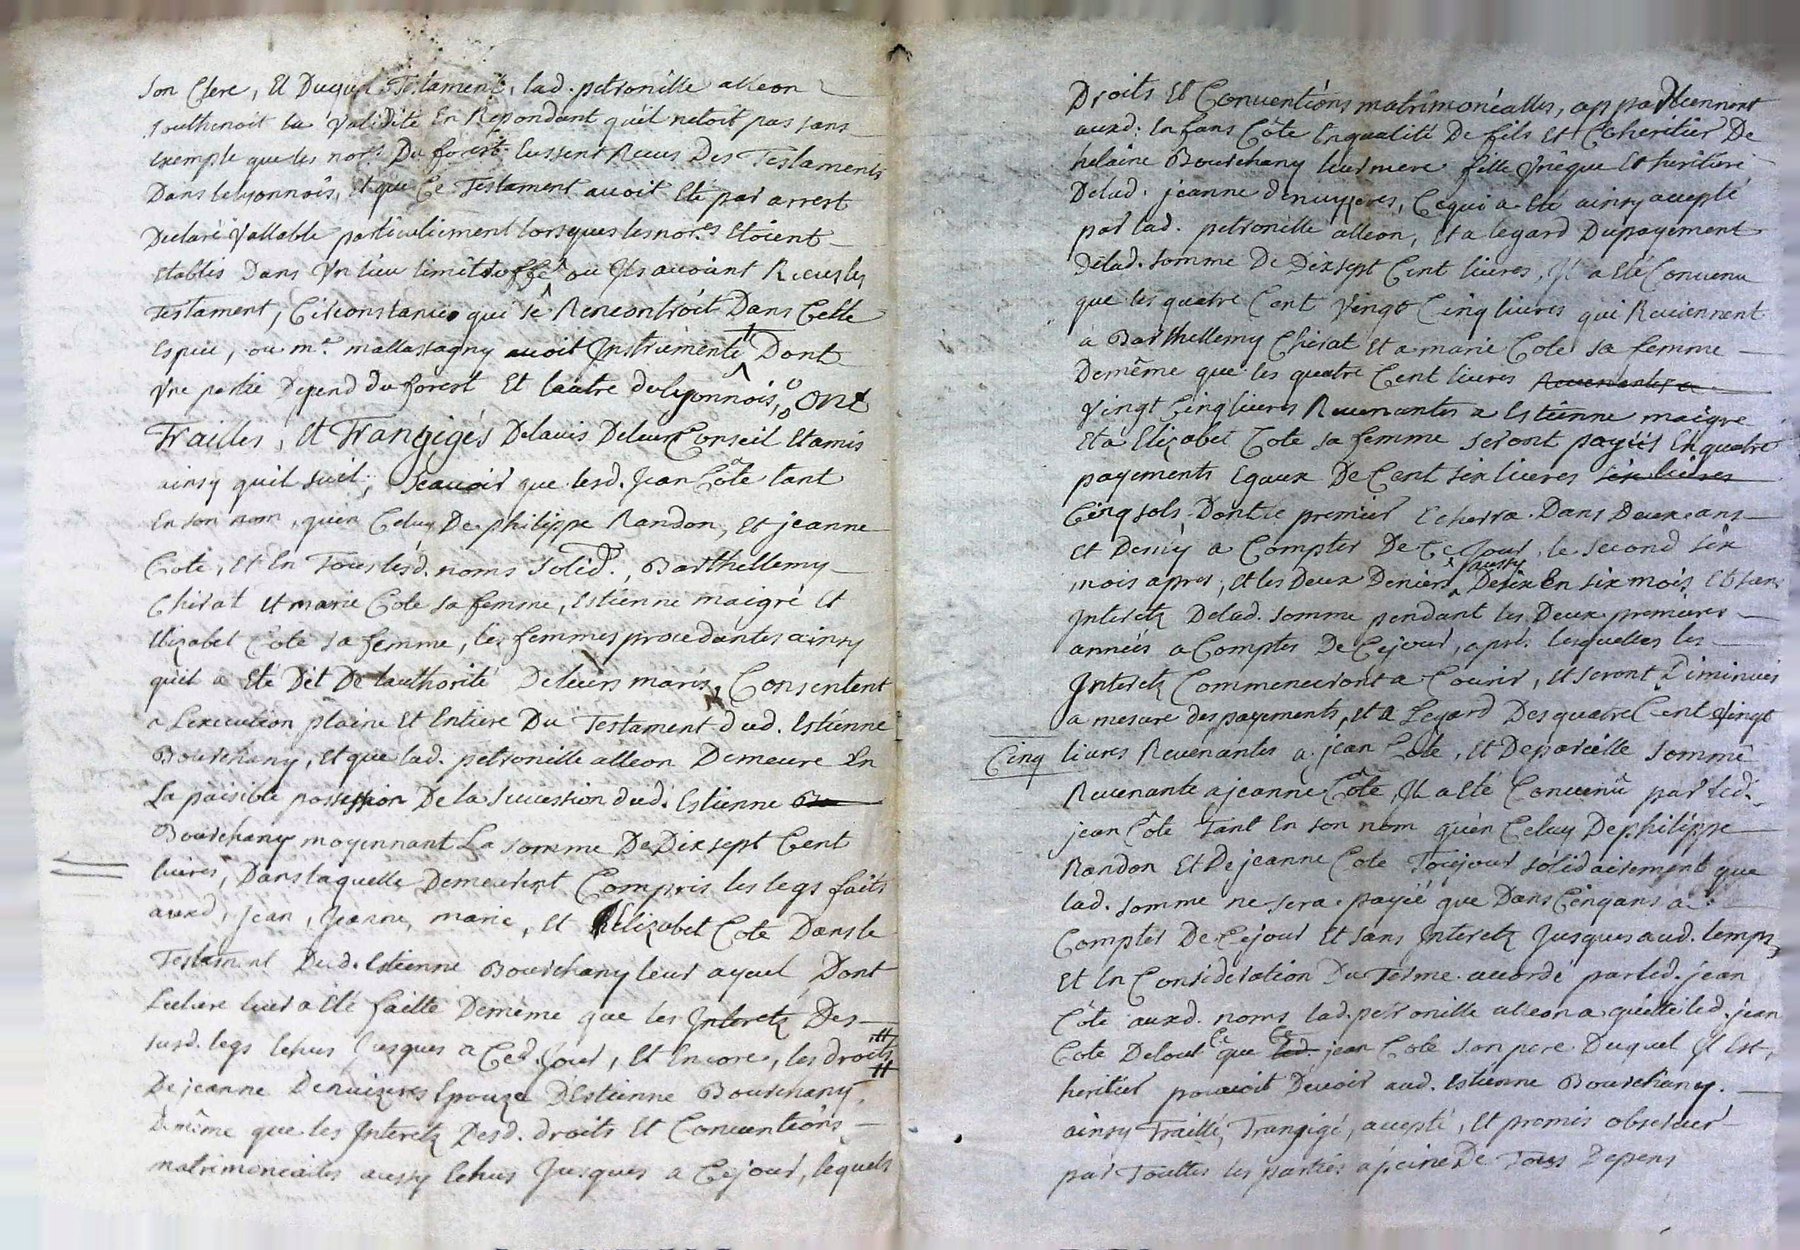 son Clerc, Et Duquel Testament, lad. petronille alleon
southenoit la Validité En Repondant quil netoit pas sans
exemple que les nores. Du forest Eussent Recus Des Testaments
Dans le lyonnois, et que Ce Testament avoit Eté par arrest
Declaré Vallable particulierement lorsques les nores. Etoient
Etablis Dans Vn lieu limitroffe ou Ils avoint Recus les
Testament, Circonstance qui se Rencontroit Dans Cette
Espece, ou me. mallassagny avoit Instrumenté Dont
Vne partie Depend du forest Et lautre du lyonnois, ont
Traittés, Et Transigés De lavis De leur Conseil Et amis
ainsy quil suit; Scavoir que lesd. Jean Côte tant
En son nom, quen Celuy De philippe Randon, Et jeanne
Cote, Et En Tous lesd. noms solid., Barthellemy
Chirat Et marie Cote sa femme, Estienne maigre Et
Elizabet Cote sa femme, les femmes procedantes ainsy
quil a Eté Dit De lauthorité De leurs maris, Consentent
a Lexecution plaine Et Entiere Du Testament dud. Estienne
Bourchany, Et que lad. petronille alleon Demeure En
La paisible possession De la Succession dud. Estienne Bo
Bourchany moyennant La somme De Dix sept Cent
livres, Dans laquelle Demeurent Compris les legs faits
auxd. Jean, Jeanne, marie, Et Elizabet Cote Dans le
Testament Dud. Estienne Bourchany leur ayeul Dont
Lecture leur a Eté faitte De même que les Interetz Des
susd. legs Echus Jusques a Ced. Jour, Et Encore, les droits
De jeanne Denuizeres Epouze D'Estienne Bourchany,
De même que les Interetz Desd. droits Et Conventions
matrimoniales aussy Echus Jusques a Ce jour, lequels
Droits Et Conventions matrimonialles, appartiennent
auxd. Enfans Côte En qualité De fils Et Coheritier De
helaine Bourchany leur mere fille Vnique Et heritiere
De lad. jeanne denuyzeres, Ce qui a Eté ainsy accepté
par lad. petronille alleon, Et a legard Du payement
De lad. somme De Dix sept Cent livres, Il a Eté Convenu
que les quatre Cent Vingt Cinq livres qui Reviennent
à Barthellemy Chirat Et a marie Cote sa femme
De même que les quatre Cent livres Revenantes a
Vingt Cinq livres Revenantes a Estienne maigre
Et a Elizabet Cote sa femme seront payées En quatre
payements Egaux De Cent six livres six livres
Cinq sols Dont le premier Echerra Dans Deux ans
Et Demy a Compter De Ce Jour, le second six
mois apres, Et les Deux Derniers aussy De six En six mois, Et sans
Interetz De lad. somme pendant les Deux premieres
années a Compter De Ce jour, apres. lesquelles les
Interetz Commenceront a Courir, Et seront Diminués
a mesure des payements, Et a Legard Des quatre Cent Vingt
Cinq livres Revenantes a jean Cote, Et De pareille somme
Revenante a jeanne Côte, Il a Eté Convenû par led.
jean Côte Tant En son nom quèn Celuy De philippe
Randon Et De jeanne Cote Toujour solidairement que
lad. somme ne sera payée que Dans Cinq ans a
Compter De Ce jour Et sans Interetz Jusques aud. temps,
Et En Consideration Du Terme accordé par led. jean
Côte auxd. noms lad. petronille alleon a quitté led. jean
Cote De tout Ce que led. Ce jean Cote son pere Duquel Il Est
heritier pouvoit Devoir aud. Estienne Bourchany.
ainsy Traitté, Transigé, accepté, Et promis observer
par Touttes les parties a peine De Tous Depens